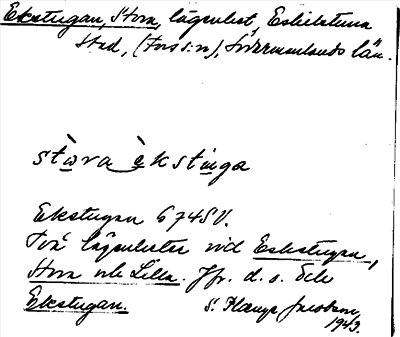 Ekstugan, Stora, lägenhet, Eskilstuna
Stad, (Fors s:n), Södermanlands län.
stòra èkstuga
Ekstugan 674SV.
Två lägenheter vid Ekstugan,
Stora och Lilla. Jfr. d. o. och
Ekstugan.
S.
1943.